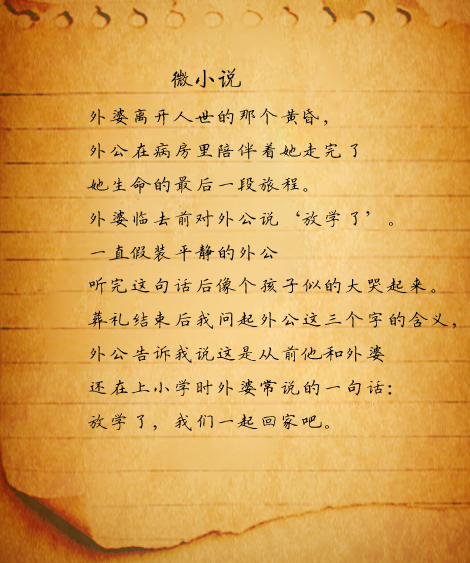 微小说
外婆离开人世的那个黄昏，
外公在病房里陪伴着她走完了
她生命的最后一段旅程。
外婆临去前对外公说‘放学了’。
一直假装平静的外公
听完这句话后像个孩子似的大哭起来。
葬礼结束后我问起外公这三个字的含义，
外公告诉我说这是从前他和外婆
还在上小学时外婆常说的一句话：
放学了，我们一起回家吧。